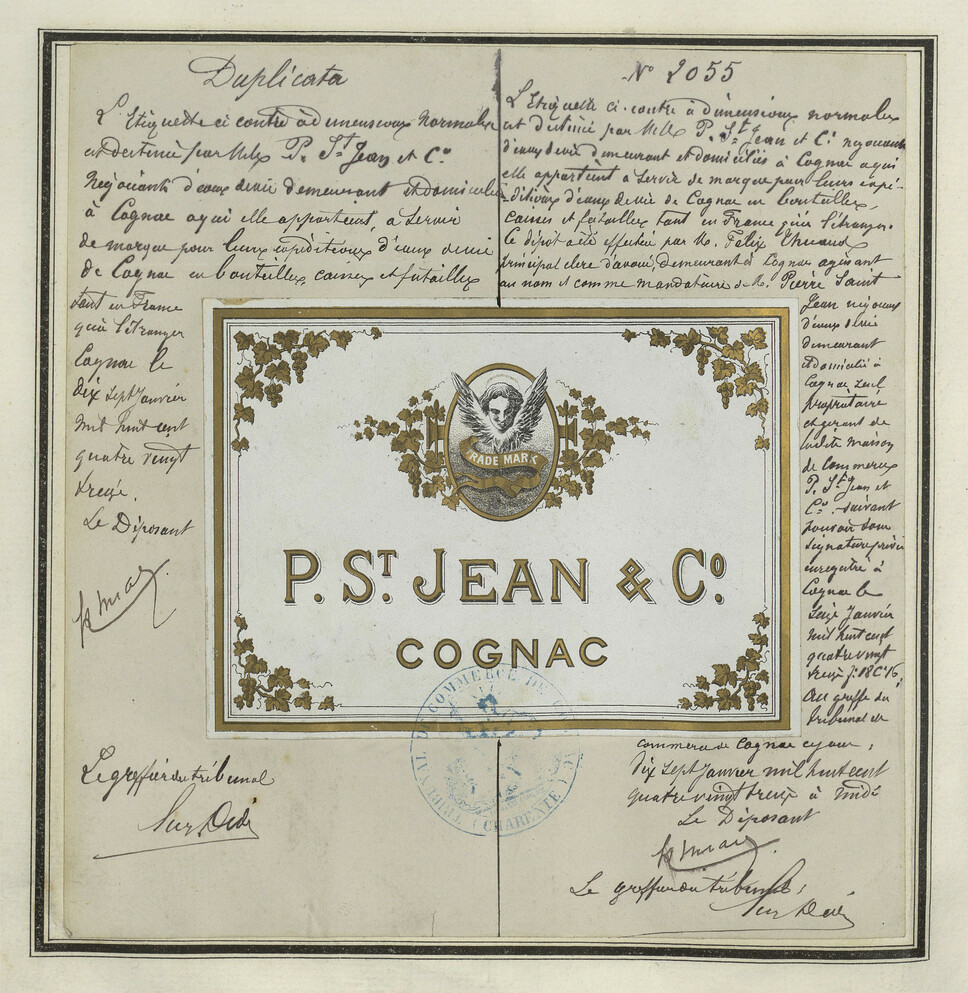 Duplicata
L'Etiquette ci contre à dimensions normales
est destinée par MMrs P. St Jean et Co
Négociants d'eaux de vie demeurant et domiciliés
à Cognac à qui elle appartient, à servir
de marque pour leurs expéditions d'eaux de vie
de Cognac en bouteilles, caisses et futailles
tant en France
qu'à l'étranger
Cognac le
dix sept Janvier
mil huit cent
quatre vingt
treize.
Le Déposant
Le greffier du tribunal
No 2055
L'Etiquette ci-contre à dimensions normales
est destinée par MMrs P. St Jean et Co négociants
d'eaux de vie demeurant et domiciliés à Cognac à qui
elle appartient à servir de marque pour leurs expé-
ditions d'eaux de vie de Cognac en bouteilles,
caisses et futailles tant en France qu'à l'étranger.
Le dépôt a été effectué par M. Félix
principal clerc d'avoué, demeurant à Cognac agissant
au nom et comme mandataire de M. Pierre Saint
Jean négociant
d'eaux de vie
demeurant
et domicilié à
Cognac seul
propriétaire
et gérant de
ladite maison
de commerce
P. St Jean et
Co suivant
pouvoir sous
signature privée
enregistré à
Cognac le
seize Janvier
mil huit cent
quatre vingt
treize fo 18 Co 16,
Au greffe du
tribunal de
commerce de Cognac ce jour,
dix sept Janvier mil huit cent
quatre vingt treize à midi
Le Déposant
Le greffier du tribunal,
TRADE MARK
P. ST. JEAN & CO.
COGNAC
TRIBUNAL DE COMMERCE DE COGNAC
(CHARENTE)